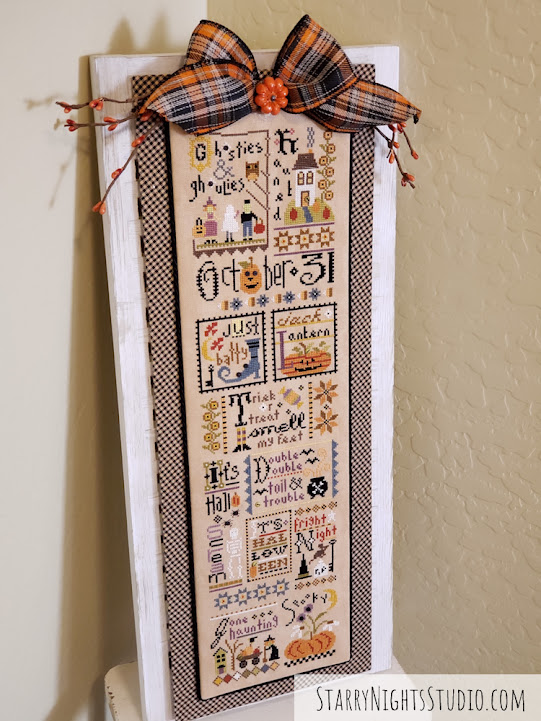 Ghosties
&
ghoulies
Haunted
October 31
just
batty
Jack
Lantern
Trick
or
treat
smell
my feet
Double
Double
toil &
trouble
It's
Hall
IT'S
HAL
LOW
EEN
Fright
Night
gone
haunting
Spooky
StarryNightsStudio.com